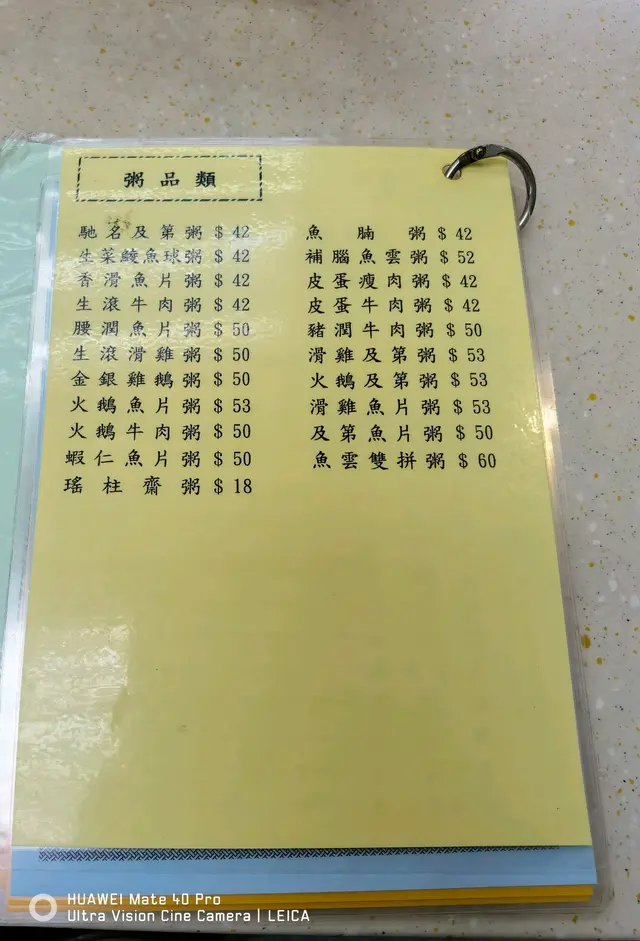 粥品類
馳名及第粥 $ 42
生菜鯪魚球粥 $ 42
香滑魚片粥 $ 42
生滾牛肉粥 $ 42
腰潤魚片粥 $ 50
生滾滑雞粥 $ 50
金銀雞鵝粥 $ 50
火鵝魚片粥 $ 53
火鵝牛肉粥 $ 50
蝦仁魚片粥 $ 50
瑤柱齋粥 $ 18
魚腩粥 $ 42
補腦魚雲粥 $ 52
皮蛋瘦肉粥 $ 42
皮蛋牛肉粥 $ 42
豬潤牛肉粥 $ 50
滑雞及第粥 $ 53
火鵝及第粥 $ 53
滑雞魚片粥 $ 53
及第魚片粥 $ 50
魚雲雙拼粥 $ 60
HUAWEI Mate 40 Pro
Ultra Vision Cine Camera | LEICA